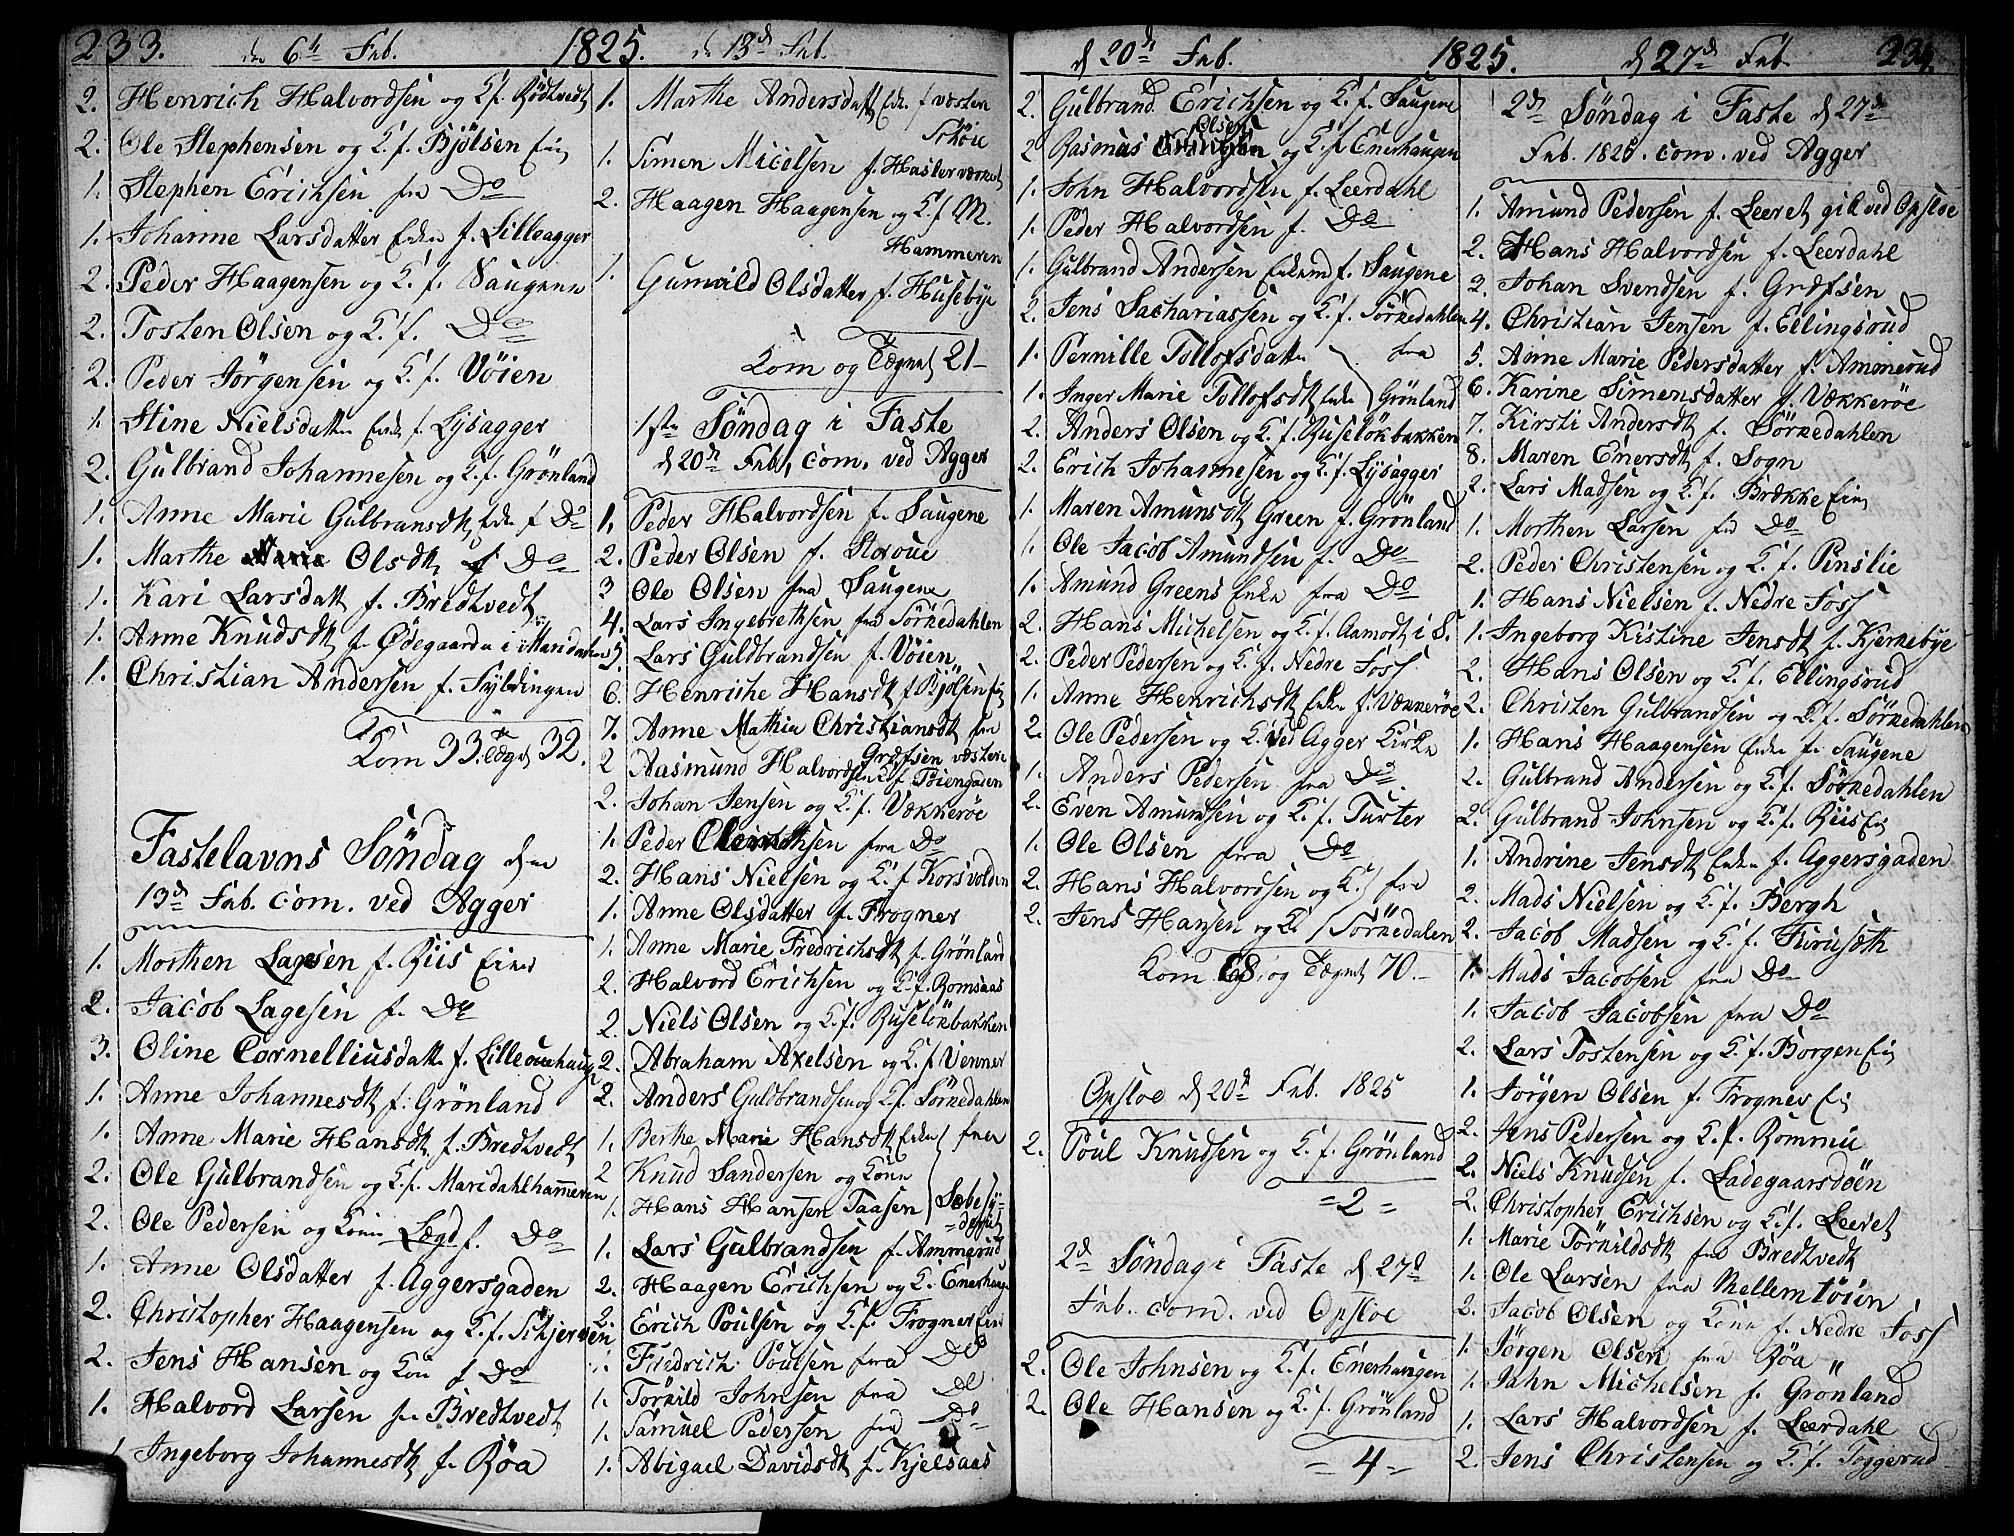 233. den 6te Feb. 1825. d 13de Feb.
2. Henrich Halvordsen og K. f. Rødtvedt
2. Ole Stephensen og K. f. Bjølsen Eie
1. Stephen Erichsen fra Do
1. Johanne Larsdatter Enke f. Lilleagger
2. Peder Haagensen og K. f. Saugene
2. Tosten Olsen og K. f. Do
2. Peder Jørgensen og K. f. Vøien
1. Stine Nielsdatter Enke f. Lysagger
2. Gulbrand Johannesen og K. f. Grønland
1. Anne Marie Gulbransdtr Enke f Do
1. Marthe Olsdtr f Do
1. Kari Larsdatt f. Bredtvedt
1. Anne Knudsdtr f. Ødegaarden i Maridalen
1. Christian Andersen f. Fyldingen
Kom 33. Tægnet 32.
Fastelavns Søndag den
13de Feb. com. ved Agger
1. Morthen Lagesen f. Riis Eier
2. Jacob Lagesen f. Do
3. Oline Cornelliusdatt f. Lilleounhaug
1. Anne Johannesdtr f. Grønland
1. Anne Marie Hansdtr f. Bredtvedt
2. Ole Gulbrandsen og K. f. Maridahlhammeren
2. Ole Pedersen og Kone Lægd f. Do
1. Anne Olsdatter f. Aggersgaden
2. Christopher Haagensen og K. f. Skjersøen
2. Jens Hansen og Kone f Do
1. Halvord Larsen fra Bredtvedt
1. Ingeborg Johannesdtr f. Røa
1. Marthe Andersdatter Enke f vesten
Skøie
1. Simen Micelsen f. Hasleværket
2. Haagen Haagensen og K. f M.
Hammeren
1. Gunvild Olsdatter f. Husebye
Kom og Tægnet 21
1ste Søndag i Faste
d 20de Feb. com. ved Agger
1. Peder Halvordsen f. Saugene
2. Peder Olsen f. Storoue
3 Ole Olsen fra Saugene
4. Lars Ingebrethsen fra Sørkedahlen
5. Lars Guldbrandsen f. Vøien
6. Henrikke Hansdtr f Bjølsen Eie
7. Anne Mathea Christiansdtr fra
Grefsen vestere
2 Aasmund Halvordsen K f. Tøiengaden
2. Johan Jensen og K. f. Vækkerøe
1. Peder fra Do
2. Hans Nielsen og K. f Korsvolden
1. Anne Olsdatter f. Frogner
1. Anne Marie Fredrichsdtr f. Grønland
2. Halvord Erichsen og K. f. Romsaas
2. Niels Olsen og K. f. Ruseløkbakken
2. Abraham Axelsen og K. f Venner
2. Anders Guldbrandsen og K f. Sørkedahlen
1. Berthe Marie Hansdtr Enke fra
2 Knud Sandersen og Kone
1. Hans Hansen Taasen Sæbesÿ=
=deriet
1. Lars Gulbrandsen f. Ammerud
2. Haagen Erichsen og K. Enerhaugen
2. Erich Poulsen og K. f. Frogner Eier
1. Fredrich Poulsen fra Do
1. Torkild Johnsen fra Do
1. Samuel Pedersen fra Do
1. Abigael Davidsdtr f. Kjelsaas
d 20de Feb. 1825. d 27de Feb 234.
2. Gulbrand Erichsen og K. f. Saugene
2 Rasmus Olsen og K. f Enerhaugen
1. John Halvordsen f. Leerdahl
1. Peder Halvordsen f. Do
1. Gulbrand Andersen Enkemd f. Saugene
2. Jens Sachariassen og K. f. Sørkedahlen
1. Pernille Tollofsdatter fra
1. Inger Marie Tollofsdtr Enke Grønland
2. Anders Olsen og K. f. Ruseløkbakken
2. Erich Johannesen og K. f. Lysagger
1. Maren Amunsdtr Green f. Grønland
1. Ole Jacob Amundsen f. Do
1. Amund Greens Enke fra Do
2. Hans Michelsen og K. f. Aamodt i S.
2. Peder Pedersen og K. f. Nedre Foss
1. Anne Henrichsdtr Enke f. Vækkerøe
2. Ole Pedersen og K. ved Agger Kirke
1. Anders Pedersen fra Do.
2. Even Amundsen og K. f. Turter
1. Ole Olsen fra Do
2. Hans Halvordsen og K. fra
2. Jens Hansen og K. Sørkedalen
Kom 68 og Tægnet 70.
Opsloe d 20de Feb. 1825
2. Poul Knudsen og K. f. Grønland
= 2 =
2d Søndag i Faste d 27de
Feb. com. ved Opsloe
2. Ole Johnsen og K. f. Enerhaugen
2. Ole Hansen og K. f. Grønland
= 4 =
2de Søndag i Faste d 27de
Feb. 1825. com. ved Agger
1. Amund Pedersen f. Leeret gik ved Opsloe
2. Hans Halvordsen f. Leerdahl
3. Johan Svendsen f. Græfsen
4. Christian Jensen f. Ellingsrud
5. Anne Marie Pedersdatter f. Ammerud
6. Karine Simensdatter f. Vækkerøe
7. Kirsti Andersdtr f. Sørkedahlen
8. Maren Enersdtr f. Sogn
2. Lars Madsen og K. f. Brække Eie
1. Morthen Larsen fra Do
2. Peder Christensen og K. f. Pinslie
1. Hans Nielsen f. Nedre Foss
1. Ingeborg Kistine Jensdtr f. Kjernebye
2. Hans Olsen og K. f. Ellingsrud
2. Christen Gulbrandsen og K. f. Sørkedahlen
1. Hans Haagensen Enke f. Saugene
2. Gulbrand Andersen og K. f. Sørkedahlen
2. Gulbrand Johnsen og K. f. Riis Eie
1. Andrine Jensdtr Enke f. Aggersgaden
2. Mads Nielsen og K. f. Bergh
2. Jacob Madsen og K. f. Furusæth
1. Mads Jacobsen fra Do
1. Jacob Jacobsen fra Do
2. Lars Tostensen og K. f. Borgen Eie
1. Jørgen Olsen f. Frogner Eie
2. Jens Pedersen og K. f. Rommen
2. Niels Knudsen f. Ladegaarsdøen
2. Christopher Erichsen og K. f. Leeret
1. Marie Torkildsdtr fra Bredtvedt
1. Ole Larsen fra Mellemtøien
2. Jacob Olsen og Kone f. Nedre Foss
1. Jørgen Olsen fra Røa „
1. Jahn Michelsen f. Grønland
1. Lars Halvordsen f. Leerdahl
2. Jens Christensen og K. f. Toggerud